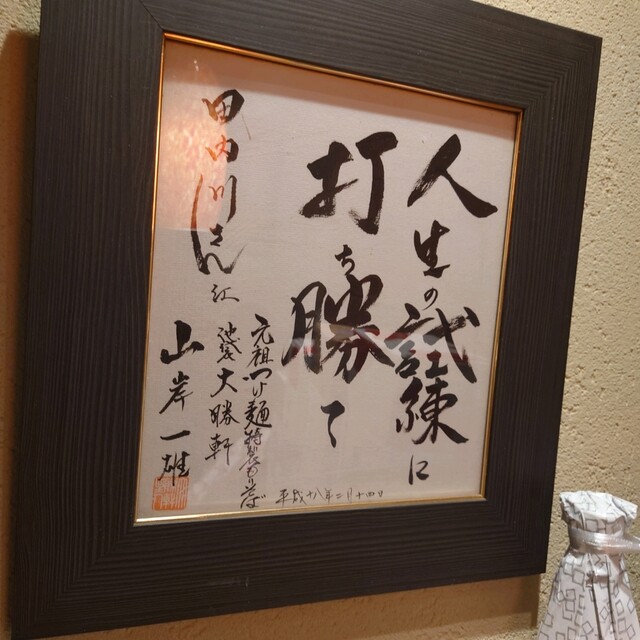 人生の試練に
打ち勝て
平成十八年二月十四日
元祖つけ麺特製もりそば
池袋大勝軒
山岸一雄
田内川さん江